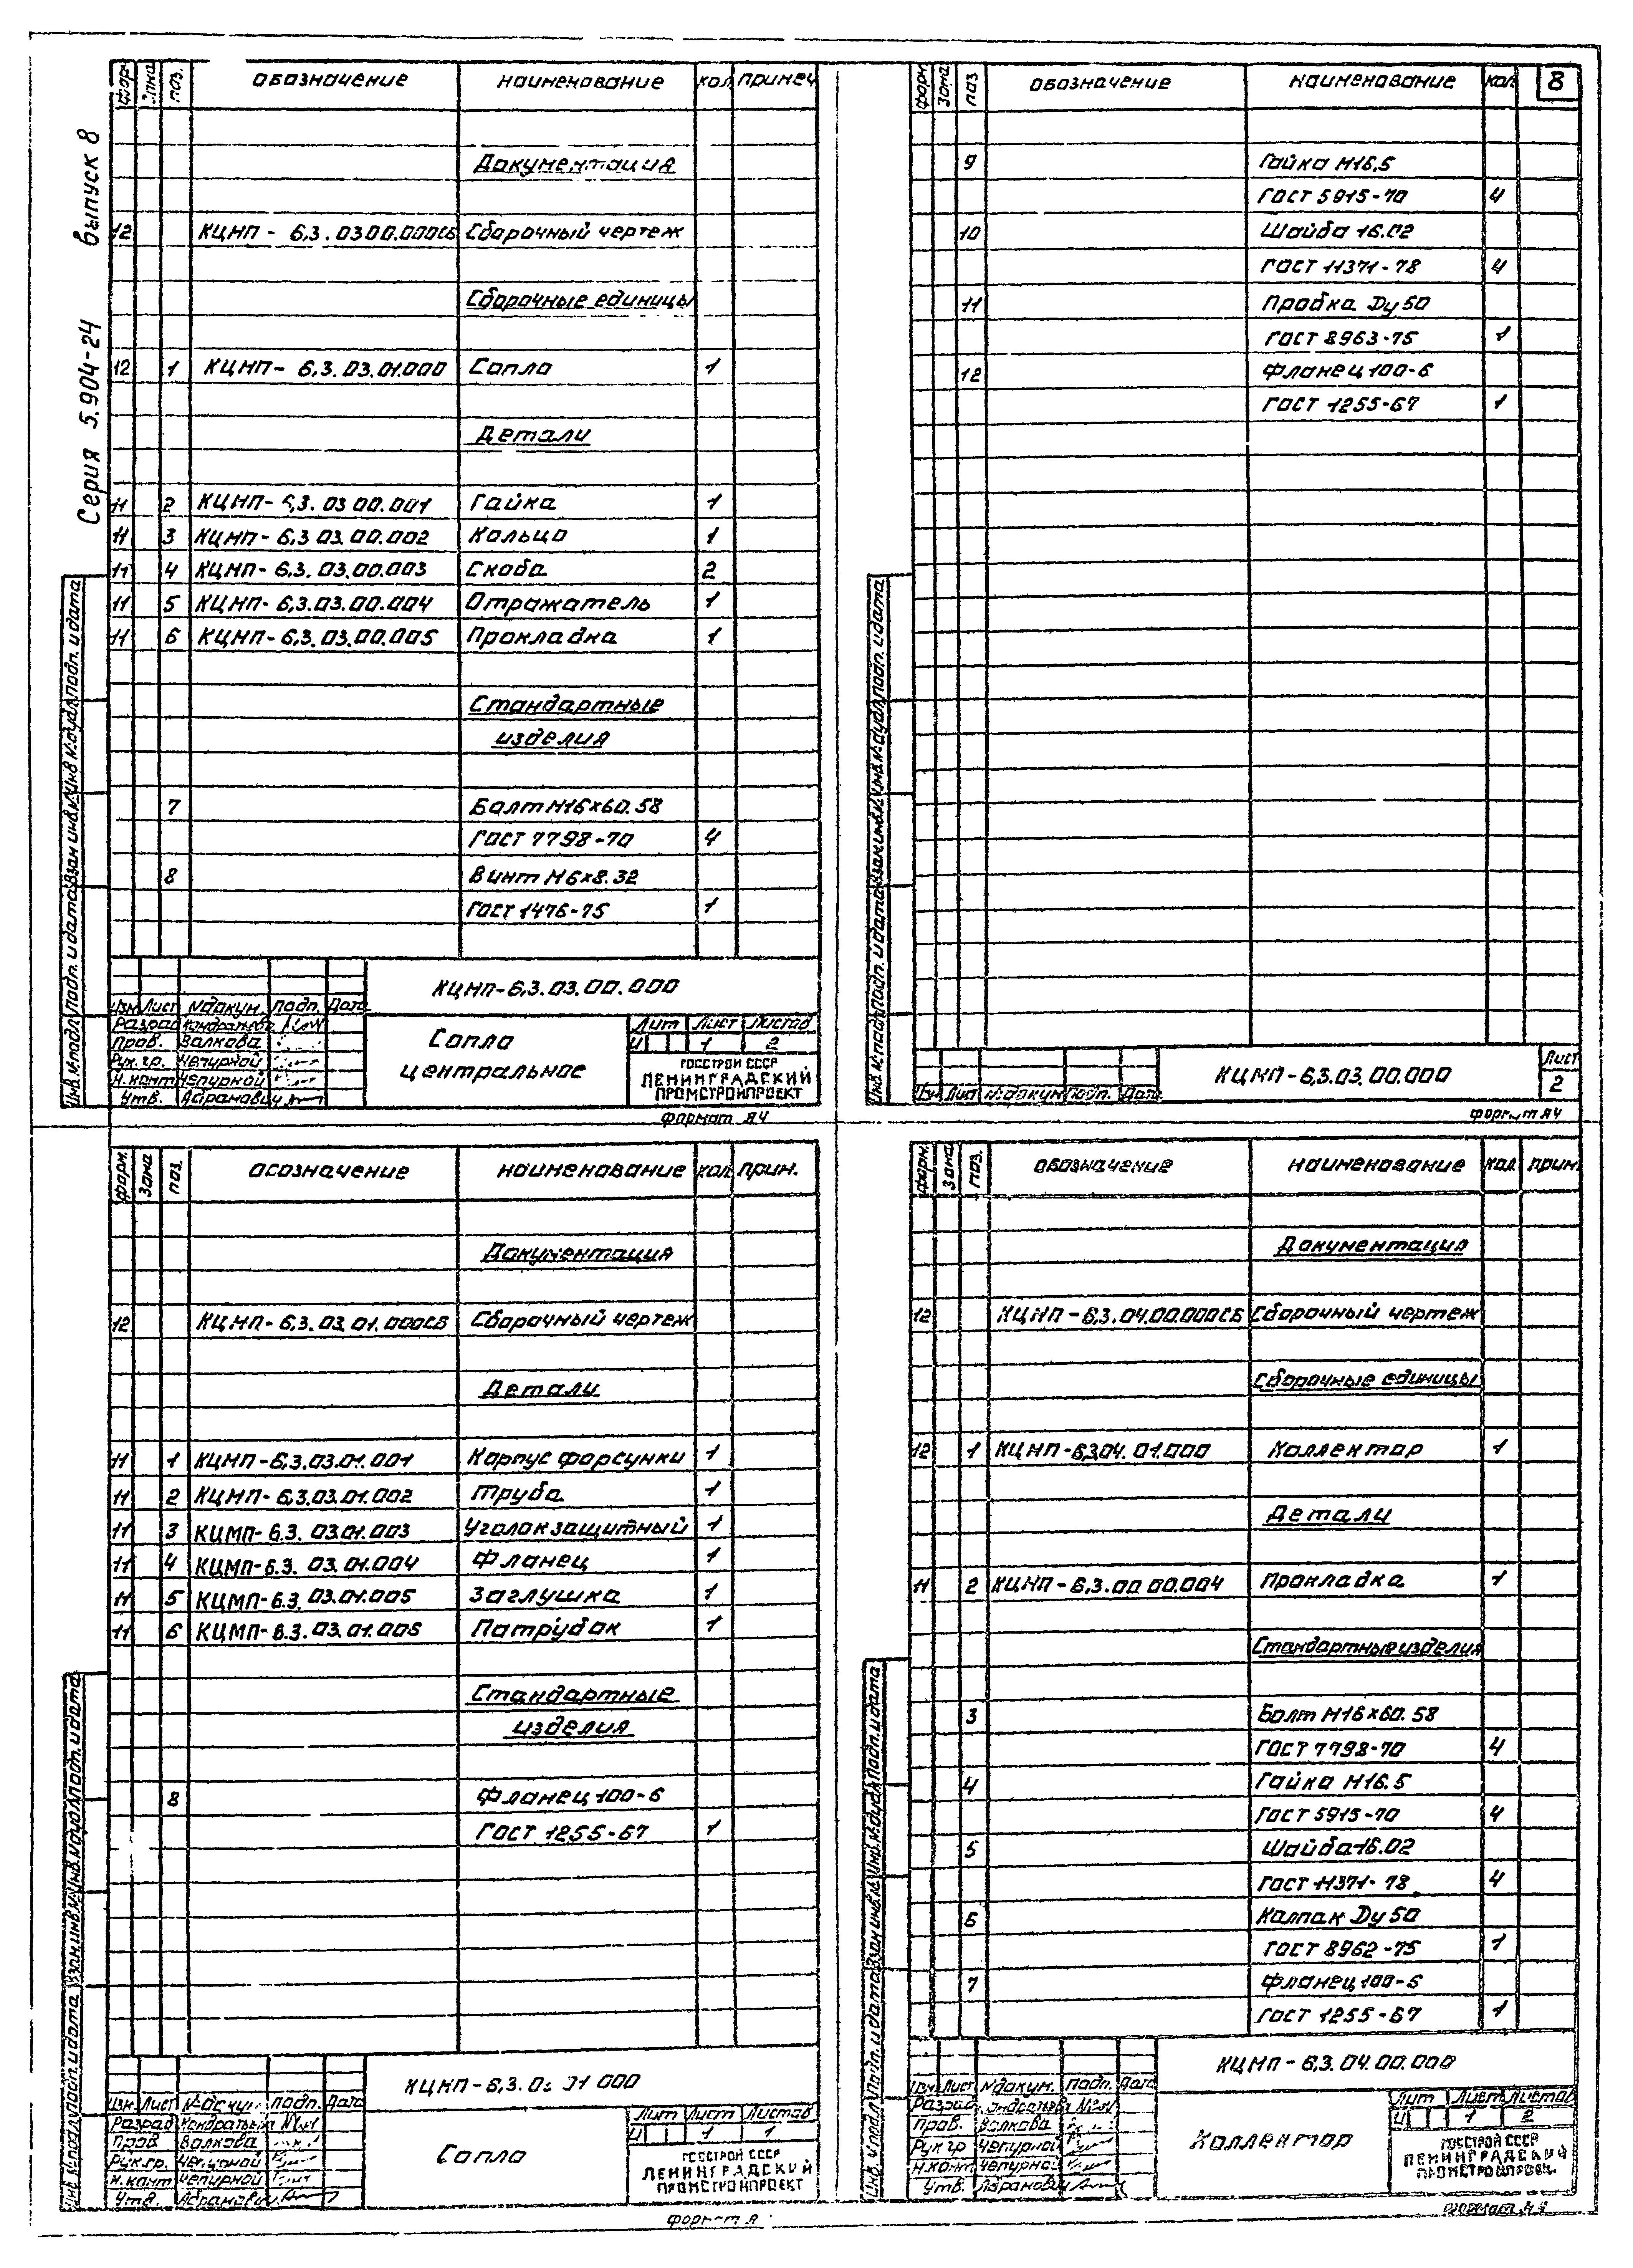 Серия 5.904-24 выпуск 8
форм. Зона поз. обозначение наименование кол. примеч
Документация
12 КЦМП - 6,3.03.00.000СБ Сборочный чертеж
Сборочные единицы
12 1 КЦМП - 6,3.03.01.000 Сопло 1
Детали
11 2 КЦМП - 6,3.03.00.001 Гайка 1
11 3 КЦМП - 6,3.03.00.002 Кольцо 1
11 4 КЦМП - 6,3.03.00.003 Скоба 2
11 5 КЦМП - 6,3.03.00.004 Отражатель 1
11 6 КЦМП - 6,3.03.00.005 Прокладка 1
Стандартные
изделия
7 Болт М16×60.58
ГОСТ 7798-70 4
8 Винт М6×8.32
ГОСТ 1476-75 1
Инв.№подл Подп. и дата Взам инв.№ Инв №дубл Подп. и дата
КЦМП-6,3.03.00.000
Изм. Лист №докум. Подп. Дата
Разраб Кондратьева
Пров. Волкова
Рук.гр. Чепурной
Н.конт Чепурной
Утв. Абрамович
Сопло
центральное
Лит Лист Листов
И 1 2
ГОССТРОЙ СССР
ЛЕНИНГРАДСКИЙ
ПРОМСТРОЙПРОЕКТ
формат А4
форм. Зона поз обозначение наименование кол. 8
9 Гайка М16,5
ГОСТ 5915-70 4
10 Шайба 16.02
ГОСТ 11371-78 4
11 Пробка Ду 50
ГОСТ 8963-75 1
12 Фланец 100-6
ГОСТ 1255-67 1
Инв.№подл Подп. и дата Взам.инв.№ Инв.№дубл Подп. и дата
Изм Лист №докум Подп. Дата
КЦМП-6,3.03.00.000
Лист
2
формат А4
форм. Зона поз. обозначение наименование кол. прим.
Документация
12 КЦМП - 6,3.03.01.000СБ Сборочный чертеж
Детали
11 1 КЦМП-6,3.03.01.001 Корпус форсунки 1
11 2 КЦМП-6,3.03.01.002 Труба 1
11 3 КЦМП-6.3. 03.01.003 Уголок защитный 1
11 4 КЦМП-6.3. 03.01.004 Фланец 1
11 5 КЦМП-6.3. 03.01.005 Заглушка 1
11 6 КЦМП-6.3. 03.01.006 Патрубок 1
Стандартные
изделия
8 Фланец 100-6
ГОСТ 1255-67 1
Инв №подл Подп. и дата Взам.инв.№ Инв.№дубл Подп. и дата
КЦМП-6,3. 01 000
Изм Лист Подп. Дата
Разраб Кондратьева
Пров Волкова
Рук.гр. Чепурной
Н.конт Чепурной
Утв. Абрамович
Сопло
Лит Лист Листов
И 1 1
ГОССТРОЙ СССР
ЛЕНИНГРАДСКИЙ
ПРОМСТРОЙПРОЕКТ
формат А
форм. Зона поз. обозначение наименование кол прим.
Документация
12 КЦМП - 6,3.04.00.000СБ Сборочный чертеж
Сборочные единицы
12 1 КЦМП-6,3.04.01.000 Коллектор 1
Детали
11 2 КЦМП-6,3.00.00.004 Прокладка 1
Стандартные изделия
3 Болт М16×60.58
ГОСТ 7798-70 4
4 Гайка М16.5
ГОСТ 5915-70 4
5 Шайба 16.02
ГОСТ 11371-78 4
6 Колпак Ду 50
ГОСТ 8962-75 1
7 Фланец 100-6
ГОСТ 1255-67 1
Инв.№подл Подп. и дата Взам инв.№ Инв.№дубл Подп. и дата
КЦМП-6,3.04.00.000
Изм Лист №докум. Подп. Дата
Разраб Кондратьева
Пров. Волкова
Рук гр Чепурной
Н.конт Чепурной
Утв. Абрамович
Коллектор
Лит Лист Листов
И 1 2
ГОССТРОЙ СССР
ЛЕНИНГРАДСКИЙ
ПРОМСТРОЙПРОЕКТ
формат А4